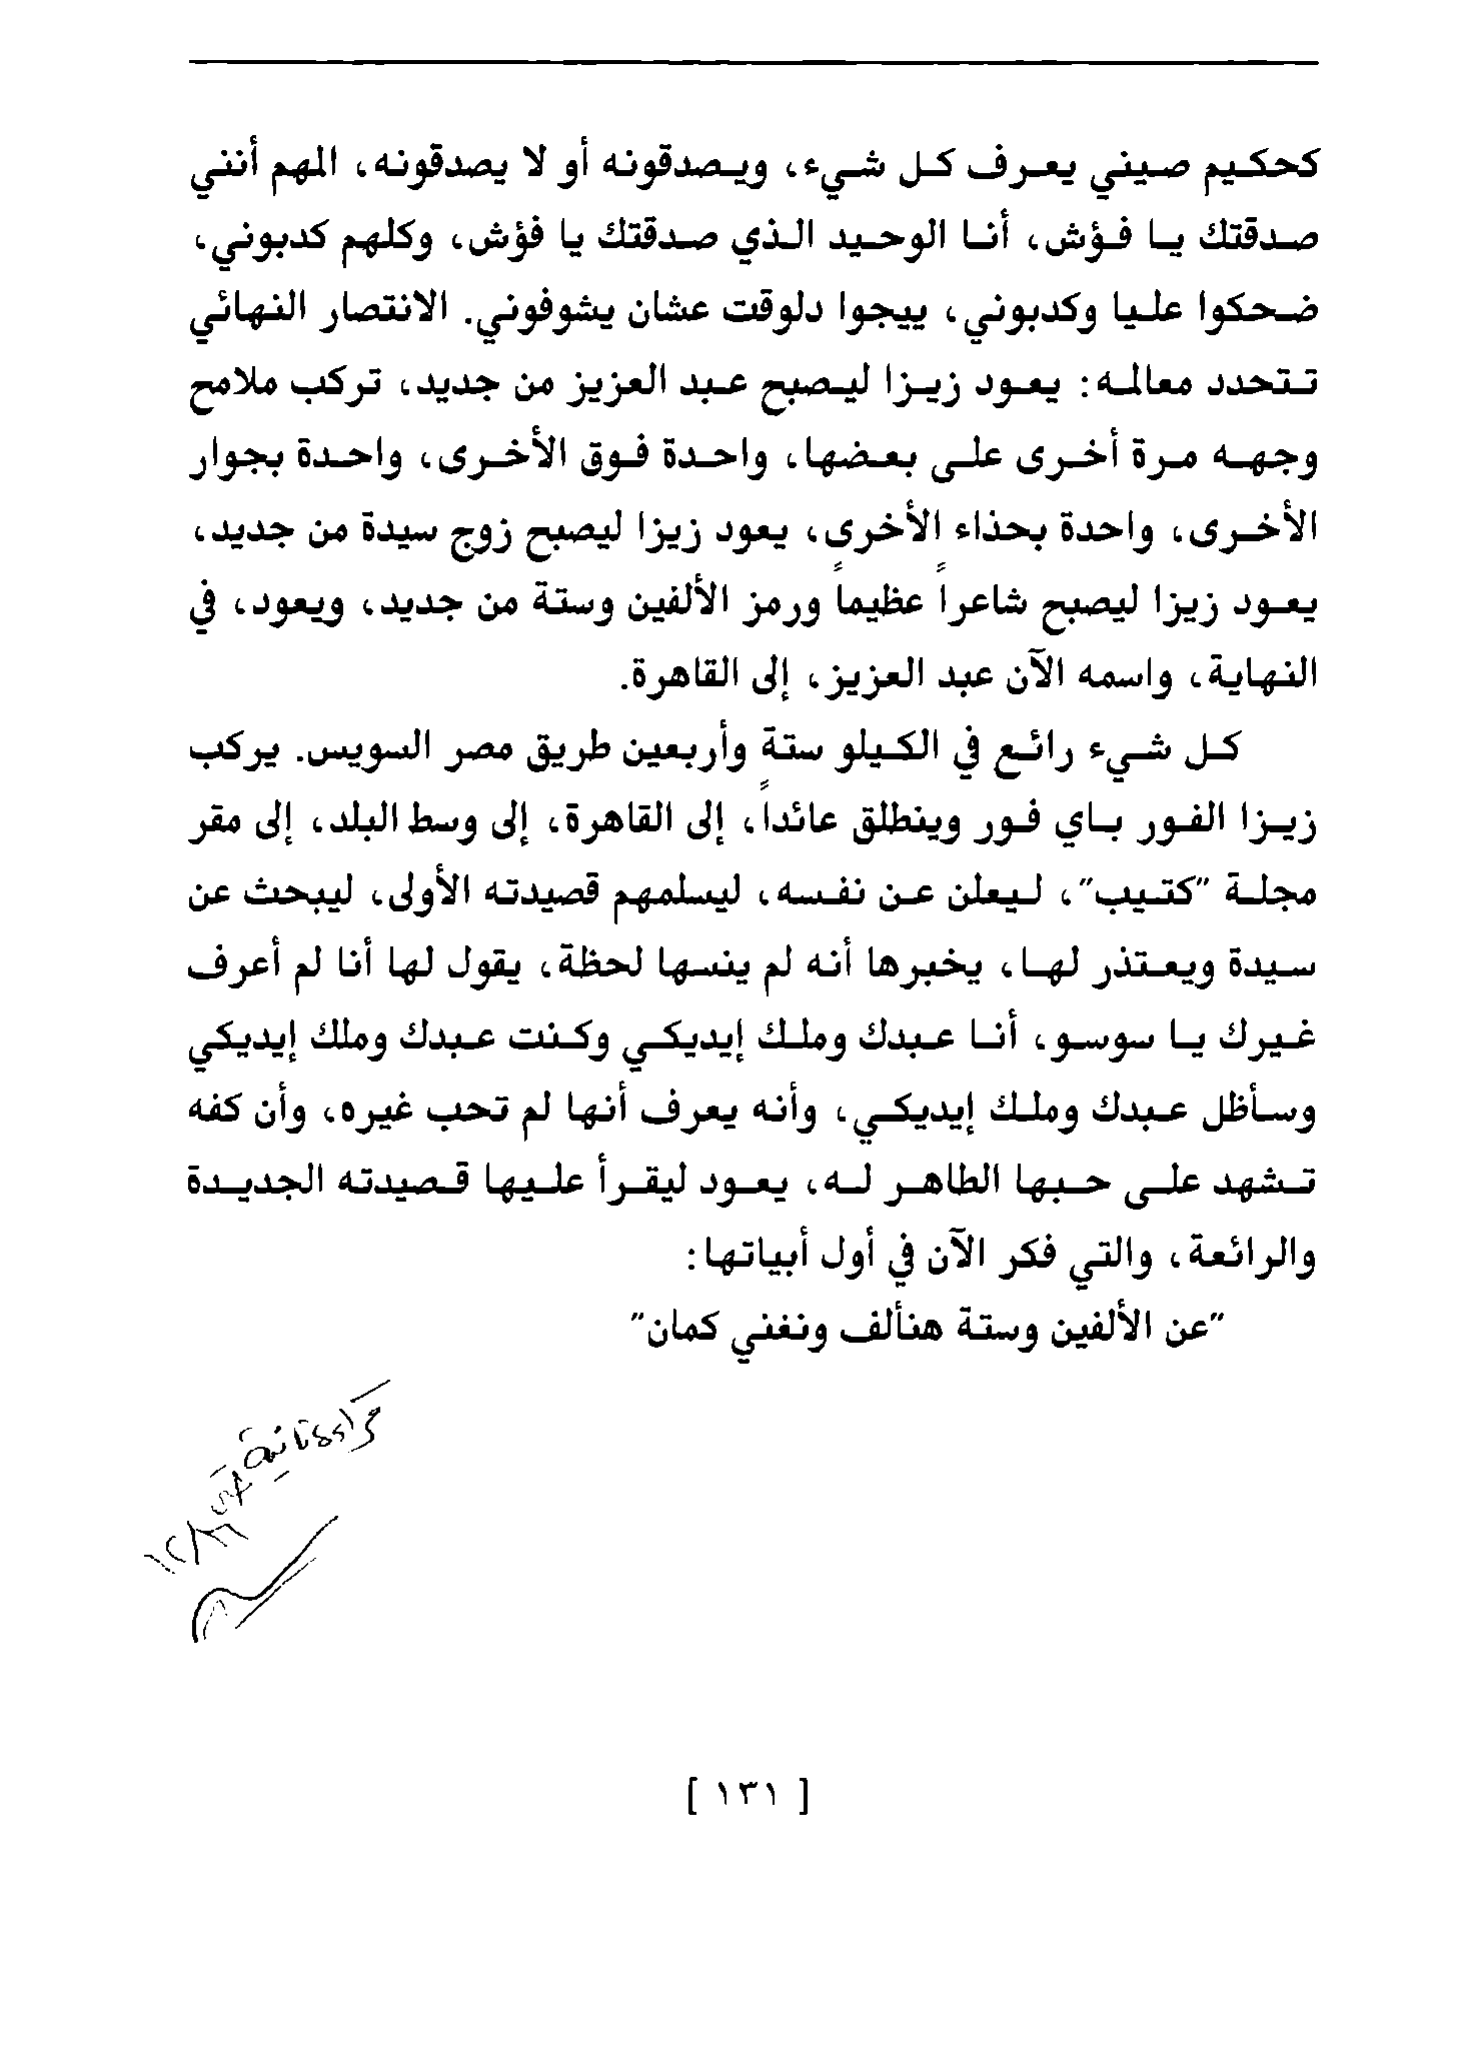 كحكيم صيني يعرف كل شيء، ويصدقونه أو لا يصدقونه، المهم أنني
صدقتك يا فؤش، أنا الوحيد الذي صدقتك يا فؤش، وكلهم كدبوني،
ضحكوا عليا وكدبوني، ييجوا دلوقت عشان يشوفوني. الانتصار النهائي
تتحدد معالمه: يعود زيزا ليصبح عبد العزيز من جديد، تركب ملامح
وجهه مرة أخرى على بعضها، واحدة فوق الأخرى، واحدة بجوار
الأخرى، واحدة بحذاء الأخرى، يعود زيزا ليصبح زوج سيدة من جديد،
يعود زيزا ليصبح شاعراً عظيماً ورمز الألفين وستة من جديد، ويعود، في
النهاية، واسمه الآن عبد العزيز، إلى القاهرة.
كل شيء رائع في الكيلو ستة وأربعين طريق مصر السويس. يركب
زيزا الفور باي فور وينطلق عائداً، إلى القاهرة، إلى وسط البلد، إلى مقر
مجلة "كتيب"، ليعلن عن نفسه، ليسلمهم قصيدته الأولى، ليبحث عن
سيدة ويعتذر لها، يخبرها أنه لم ينسها لحظة، يقول لها أنا لم أعرف
غيرك يا سوسو، أنا عبدك وملك إيديكي وكنت عبدك وملك إيديكي
وسأظل عبدك وملك إيديكي، وأنه يعرف أنها لم تحب غيره، وأن كفه
تشهد على حبها الطاهر له، يعود ليقرأ عليها قصيدته الجديدة
والرائعة، والتي فكر الآن في أول أبياتها:
"عن الألفين وستة هنألف ونغني كمان"
[ ١٣١ ]